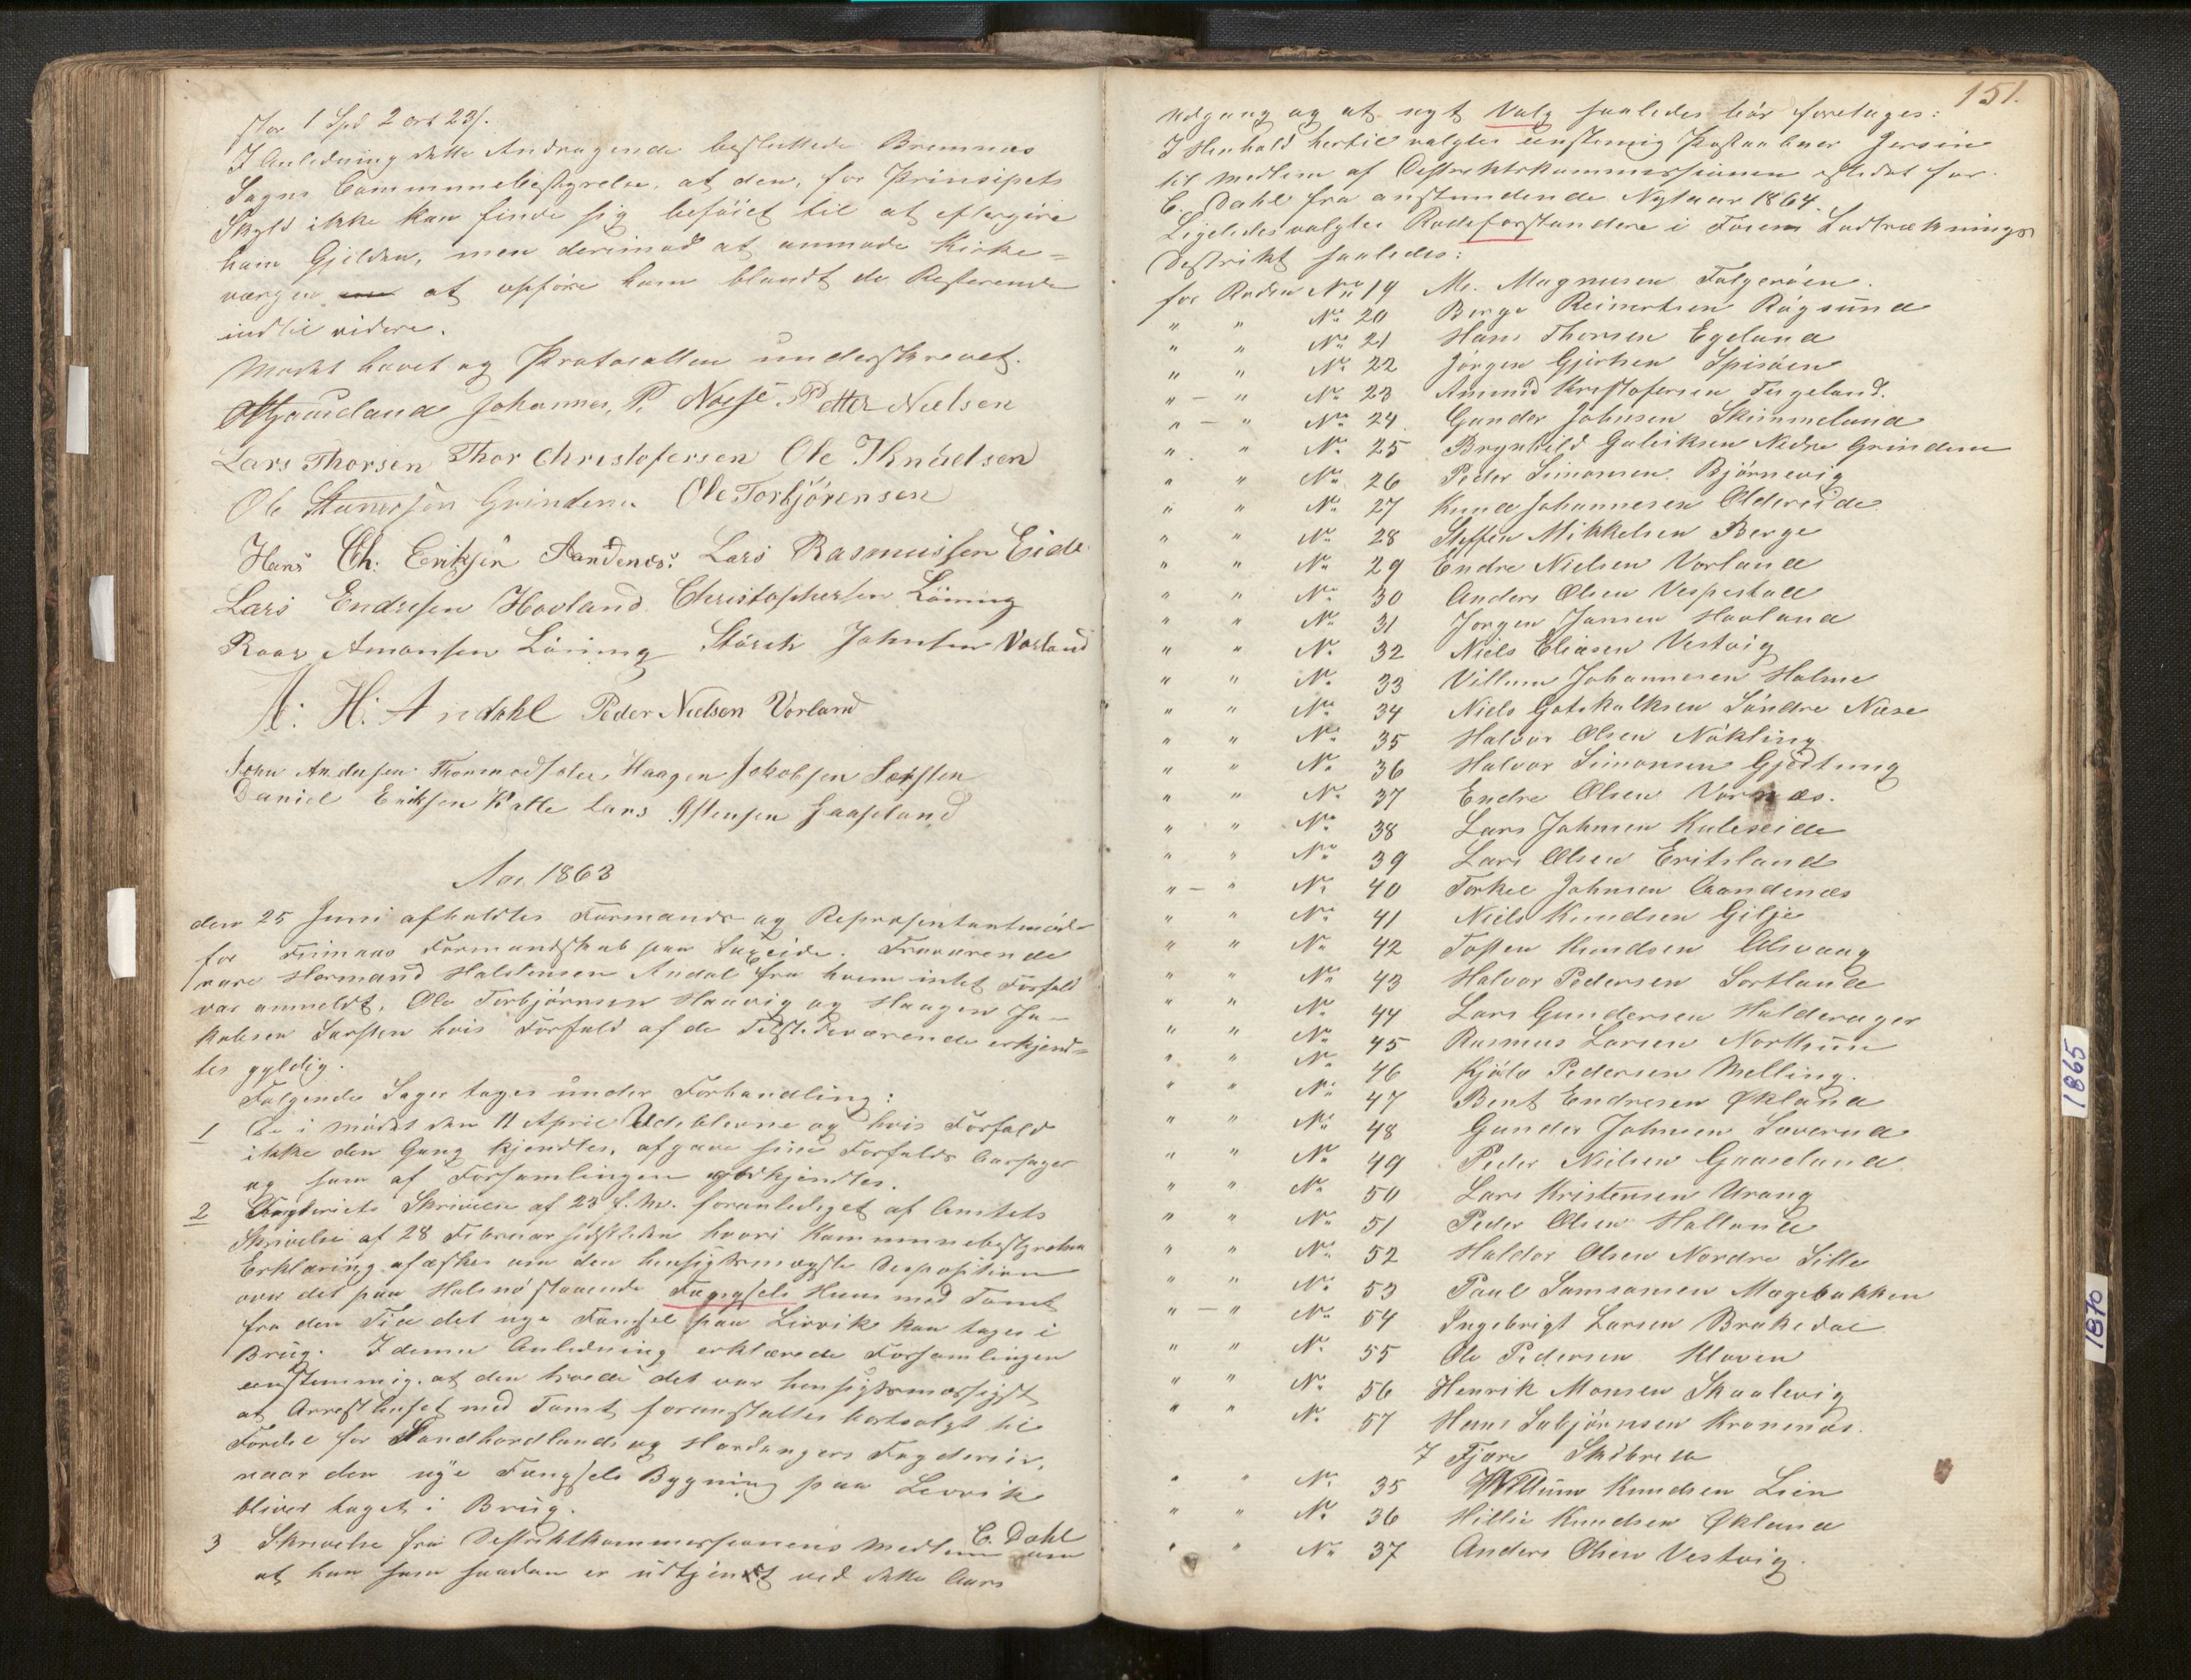 stor 1 Spd 2 ort 23 s.
I Anledning dette Andragende besluttede Bremnæs
Sogns Communebestyrelse, at den, for Prinsipets
Skyld ikke kan finde sig beföiet til at eftergive
ham Gjelden, men derimod at anmode Kirke=
værgen at opföre ham blandt de Resterende
indtil videre.
Mødet hævet og Protocollen underskrevet.
Johannes P. Næsse. Petter Nielsen
Lars Thorsen Thor Christofersen Ole Knudtsen
Ole Grinden. Ole Torbjörensen
Hans Ch: Eriksen Aandenæs: Lars Rasmussen Eide
Lars Endresen Hovland Christophersen Löning
Roar Amonsen Löning Störch Johnsen Vorland
A: H: Andahl Peder Nielsen Vorland
John Andersen Haagen Jakobsen Sørsten
Daniel Eriksen Katle Lars Østensen Gaaseland
Aar 1863
den 25 Juni afholdtes Formands og Repræsentantmøde
for Finnaas Formandskab paa Søreide. Fraværende
vare Hermand Halstensen Andal fra hvem intet Forfald
var anmeldt, Ole Torbjörnsen Haavig og Haagen Ja-
kobsen Sørsten hvis Forfald af de Tilstedeværende erkjend=
tes gyldig.
Følgende Sager toges under Forhandling:
1 De i mødet den 11 April Udeblevne og hvis Forfald
ikke den Gang kjendtes, afgave sine Forfalds Aarsager
og som af Forsamlingen godkjendtes.
2 Fogderiets Skrivelse af 23 f. M. foranlediget af Amtets
Skrivelse af 28 Februar sidstleden hvori Kommunebestyrelsens
Erklæring afæskes om den hensigtsmæsigste Desposition
over det paa Halsnø staaende Fængsels Huus med Tomt
fra den Tid det nye Fængsel paa Lervik kan tages i
Brug. I denne Anledning erklærede Forsamlingen
eenstemmig, at den troede det var hensigtsmæssigst
at Arresthuset med Tomt foranstaltes bortsolgt til
Fordel for Søndhordlands og Hardangers Fogderier,
naar den nye Fængsels Bygning paa Lervik
bliver taget i Brug.
3 Skrivelse fra Destriktskommissionens Medlem C. Dahl om
at han som saadan er udtjent ved dette Aars
151.
Udgang og at nyt Valg saaledes bör foretages:
I Henhold hertil valgtes eenstemig Postaabner Jersin
til Medlem af Destriktskommissionen istedet for
C. Dahl fra anstundende Nytaar 1864.
Ligeledes valgtes Rodeforstandere i Föiens Lodtræknings
Destrikt saaledes:
for Roden No 19 M. Magnusen Folgeröen.
" " No 20 Berge Reinertsen Rögsund
" " No 21 Hans Thorsen Egeland
" " No 22 Jörgen Gjertsen Spisöen
" - " No 23 Amund Kristofersen Tergeland.
" - " No 24 Gunder Johnsen Skimmeland
" " No 25 Brynhild Guliksen Nedre Grinden
" " No 26 Peder Simonsen Bjørnevig
" " No 27 Knud Johannesen Oldereide
" " No 28 Steffen Mikkelsen Berge
" " No 29 Endre Nielsen Vorland
" " No 30 Anders Olsen Vespestad
" " No 31 Jörgen Jansen Hovland
" " No 32 Niels Eliasen Vestvig
" " No 33 Villum Johannesen Holme
" " No 34 Niels Gotskalksen Söndre Næse
" " No 35 Halvor Olsen Nökling
" " No 36 Halvor Simonsen Gjertung
" " No 37 Endre Olsen Vornæs.
" " No 38 Lars Johnsen Kuleseide
" " No 39 Lars Olsen Eritsland
" - " No 40 Torkel Johnsen Aandenæs
" " No 41 Niels Knudsen Gilje
" " No 42 Tosten Knudsen Alsvaag
" " No 43 Halvor Pedersen Sortland
" " No 44 Lars Gundersen Holderager
" " No 45 Rasmus Larsen Nortuun
" " No 46 Kjölv Pedersen Melling.
" " No 47 Bent Endresen Økland
" " No 48 Gunder Johnsen Laverud
" " No 49 Peder Nielsen Gaaseland
" " No 50 Lars Kristensen Urang
" " No 51 Peder Olsen Holland
" " No 52 Haldor Olsen Nordre Sille
" " No 53 Paul Samsonsen Mogebakken
" - " No 54 Ingebrigt Larsen Brakedal
" " No 55 Ole Pedersen Kloven
" " No 56 Henrik Monsen Skaalevig
" " No 57 Hans Sabjörnsen Kronenæs.
7 Fjære Skibrede
" " No 35 Willum Knudsen Lien
" " No 36 Hillie Knudsen Økland
" " No 37 Anders Olsen Vestvig.
1865
1870